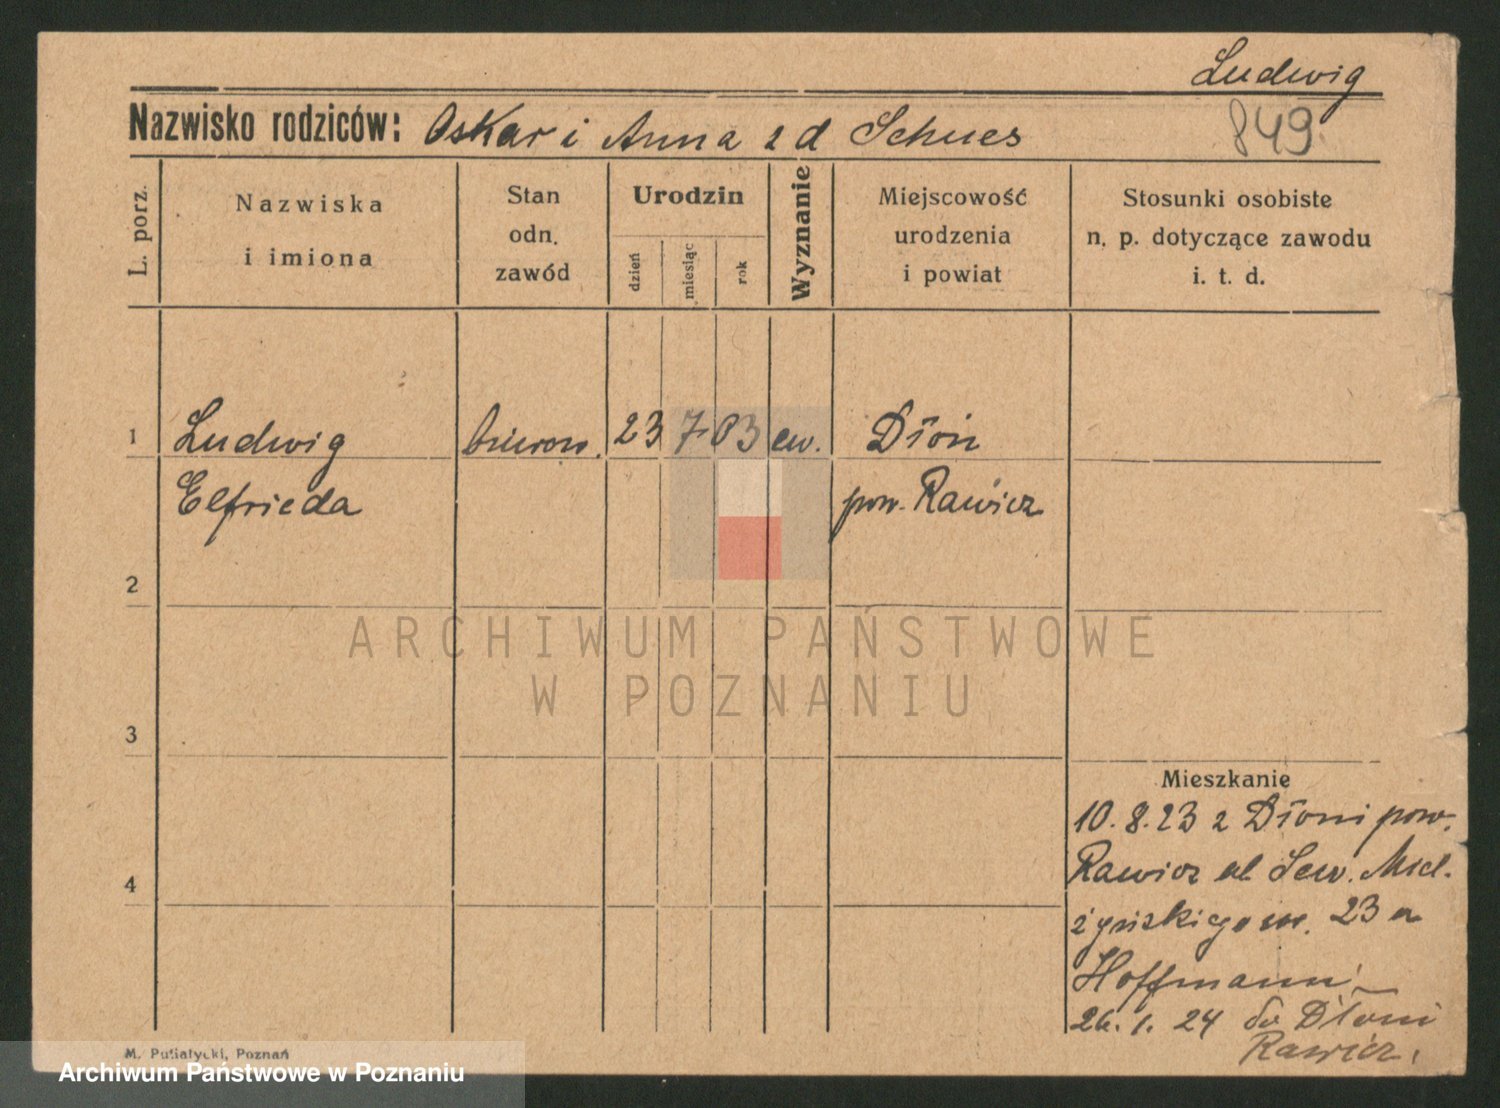 Ludwig
Nazwisko rodziców: Oskar i Anna z d Schues
849.
L. porz.
Nazwiska
i imiona
Stan
odn.
zawód
Urodzin
dzień
miesiąc
rok
Wyznanie
Miejscowość
urodzenia
i powiat
Stosunki osobiste
n. p. dotyczące zawodu
i. t. d.
1 Ludwig 23 7 03 ew. Dłoń
Elfrieda pow. Rawicz
2
ARCHIWUM PAŃSTWOWE
W POZNANIU
3
Mieszkanie
10.8.23 z Dłoni pow.
Rawicz ul Sew. Miel.
żyńskiego nr. 23 a
4
Hoffmann
26.1.24 do Dłoni
Rawicz.
M. Putiatycki, Poznań
Archiwum Państwowe w Poznaniu